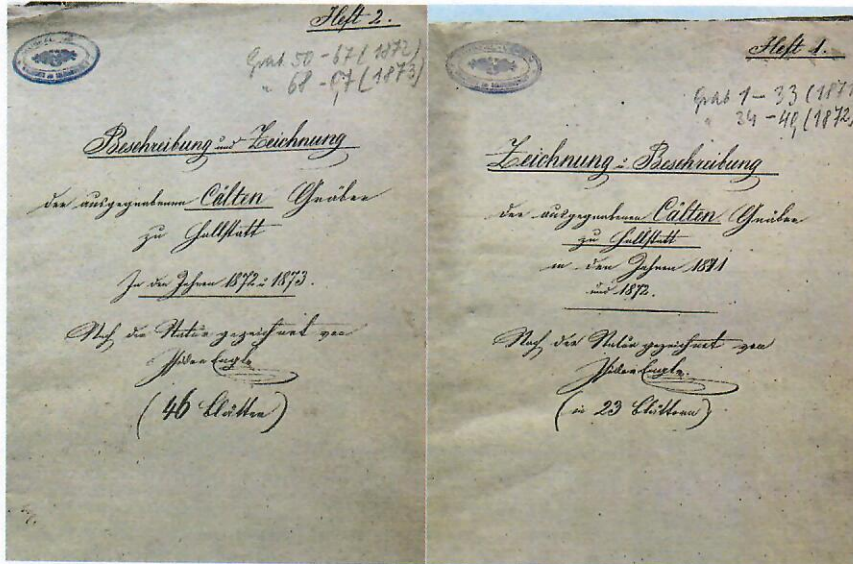 Heft 2.
Grab 50-67 (1872)
" 68-97 (1873)
Beschreibung und Zeichnung
der ausgegrabenen Cälten Gräber
zu Hallstatt
In den Jahren 1872 u 1873.
Nach der Natur gezeichnet von
Isidor Engl.
(46 Blätter)
Heft 1.
Grab 1-33 (1871
" 34-49 (1872)
Zeichnung u Beschreibung
der ausgegrabenen Cälten Gräber
zu Hallstatt
in den Jahren 1871
und 1872.
Nach der Natur gezeichnet von
Isidor Engl.
(in 23 Blättern)